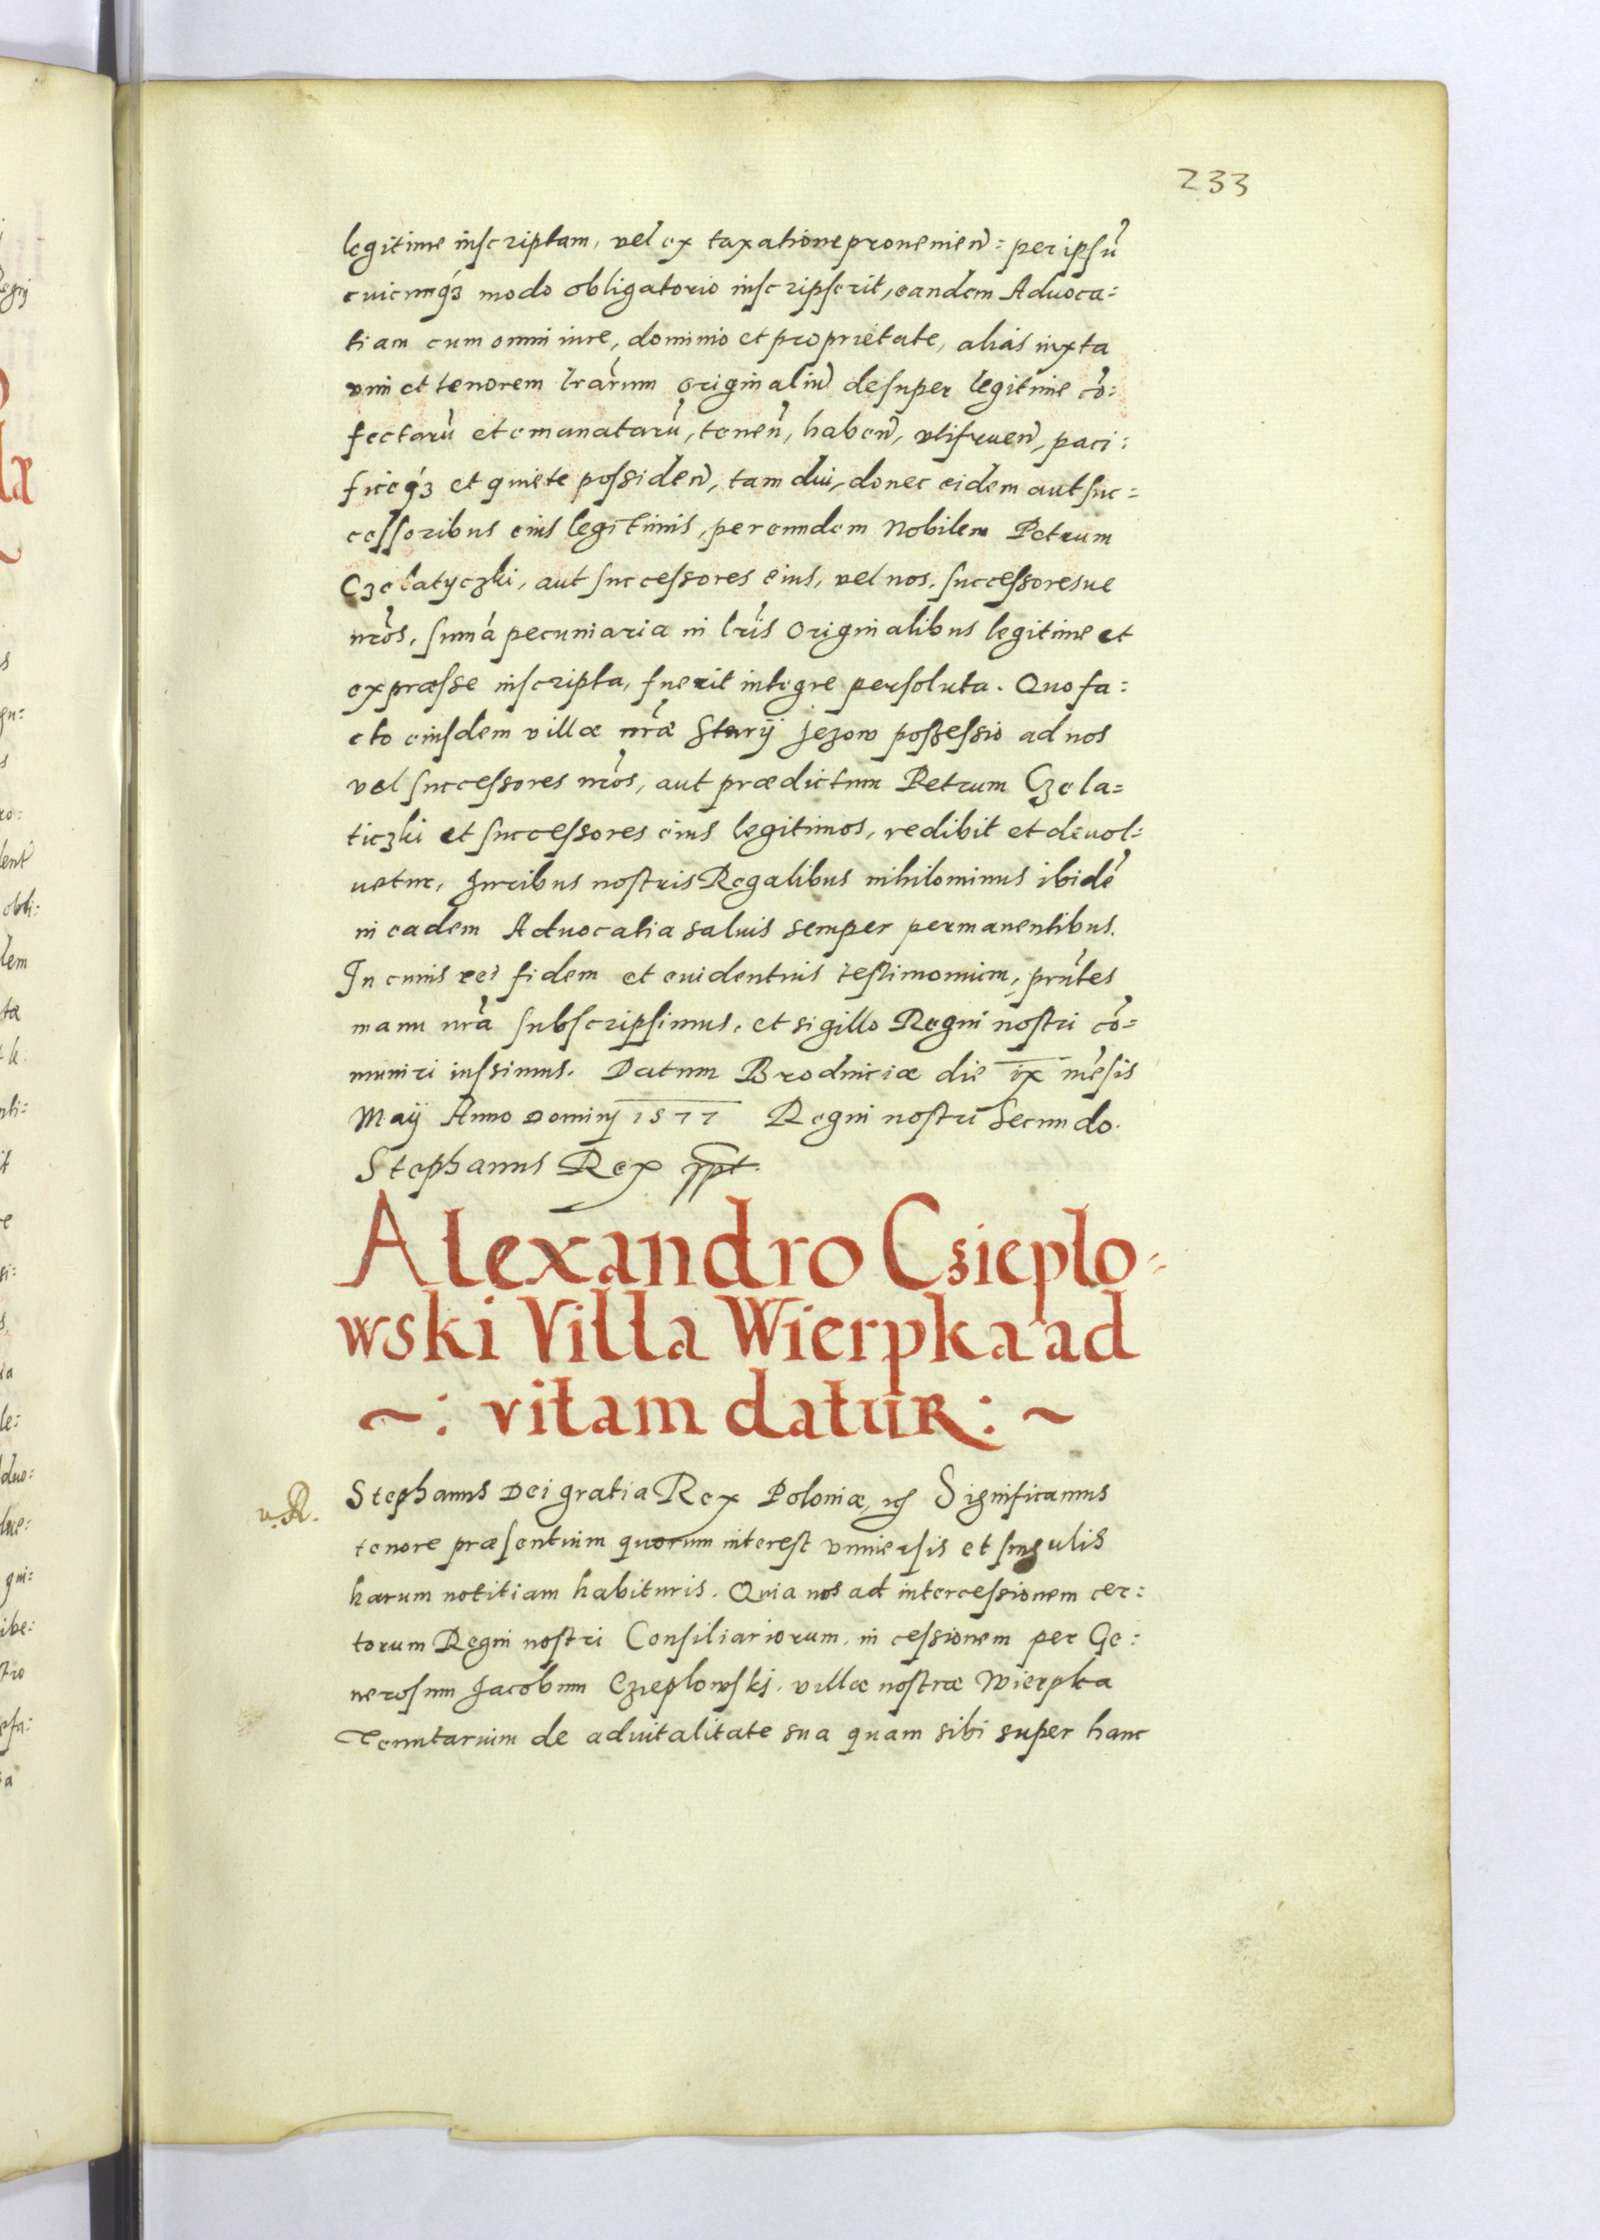 233
legitime inscriptam, vel ex taxatione prouenien̄: per ipsū
cuicunq́ꝫ modo obligatorio inscripserit, eandem Aduoca:
tiam cum omni iure, dominio et proprietate, alias iuxta
vim et tenorem lrārum originaliū desuper legitime cō:
fectarū et emanatarū, tenen̄, haben̄, vtifruen̄, paci:
ficeq́ꝫ et quiete possiden̄, tam diu, donec eidem aut suc:
cessoribus eius legitimis, per eundem Nobilem Petrum
Czelatyczki, aut successores eius, vel nos, successoresue
nrōs, sum̄a pecuniaria in lrīs Originalibus legitime et
expraesse inscripta, fuerit integre persoluta. Quo fa:
cto eiusdem villae nrāe Starij Jezow possessio ad nos
vel successores nrōs, aut praedictum Petrum Czela=
ticzki et successores eius legitimos, redibit et deuol:
uetur, Juribus nostris Regalibus nihilominus ibidē
in eadem Aduocatia saluis semper permanentibus.
In cuius rei fidem et euidentius testimonium, prn̄tes
manu nrā subscripsimus, et sigillo Regni nostri cō=
muniri iussimus. Datum Brodniciae die ix mēsis
Maij Anno Dominj 1577 Regni nostri Secundo.
Stephanus Rex sspt.
Alexandro Csieplo-
wski Villa Wierpka ad
~: vitam datur: ~
v. R.
Stephanus Dei gratia Rex Poloniae, ꝛc̄ Significamus
tenore praesentium quorum interest vniuersis et singulis
harum notitiam habituris. Quia nos ad intercessionem cer:
torum Regni nostri Consiliariorum, in cessionem per Ge:
nerosum Jacobum Czieplowskj, villae nostrae Wierpka
Tenutarium de aduitalitate sua quam sibi super hanc